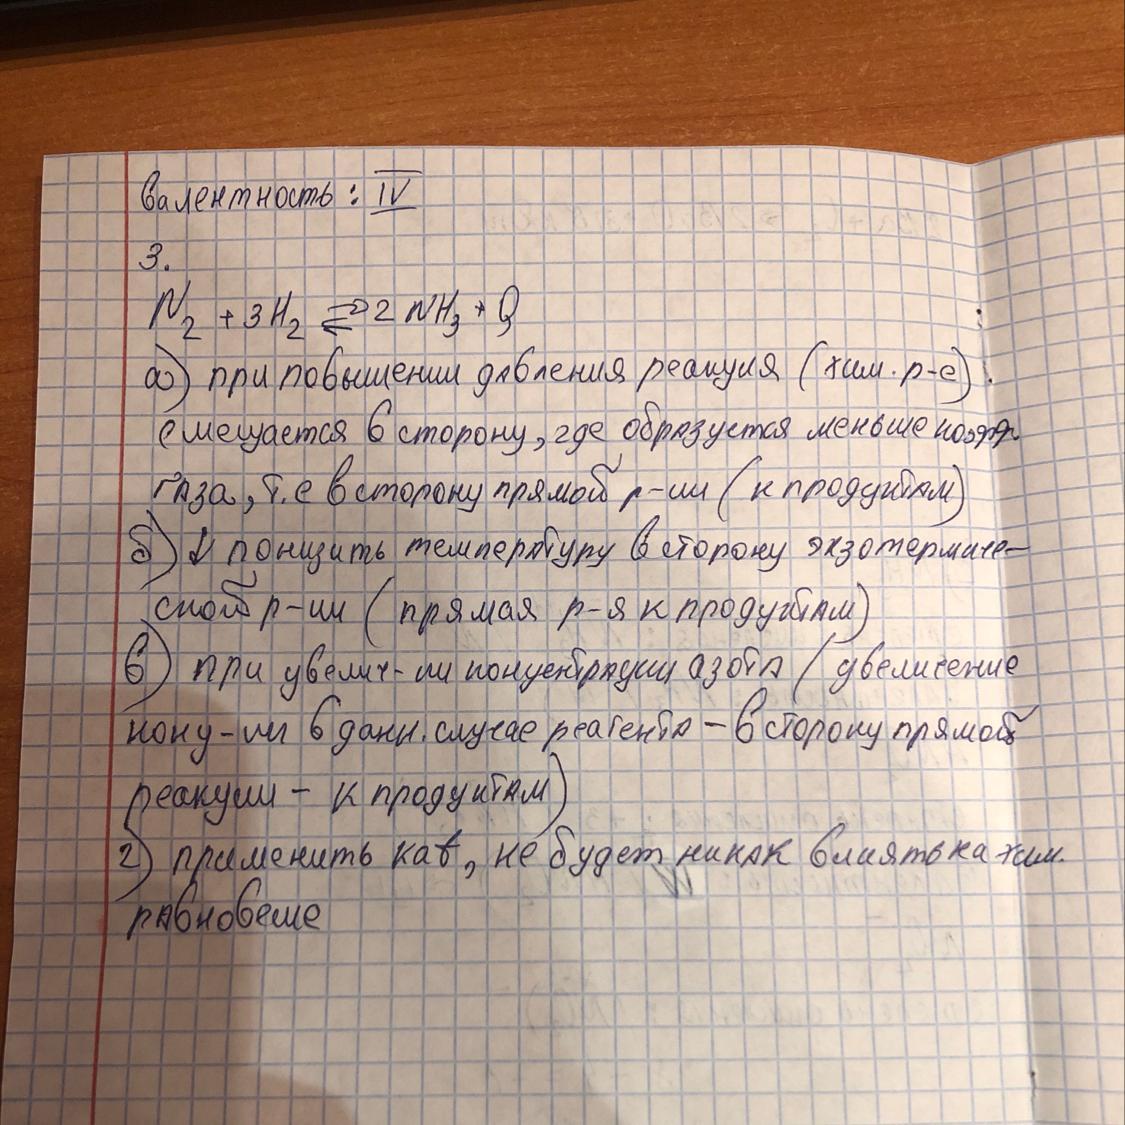 валентность: IV
3.
N2 + 3H2 ⇄ 2 NH3 + Q
а) при повышении давления реакция (хим. р-е)
смещается в сторону, где образуется меньше коэфф.
газа, т.е в сторону прямой р-ии (к продуктам)
б) ↓ понизить температуру в сторону экзотермиче-
ской р-ии (прямая р-я к продуктам)
в) при увелич-ии концентрации азота (увеличение
конц-ии в данн. случае реагента – в сторону прямой
реакции – к продуктам)
г) применить kat, не будет никак влиять на хим.
равновесие